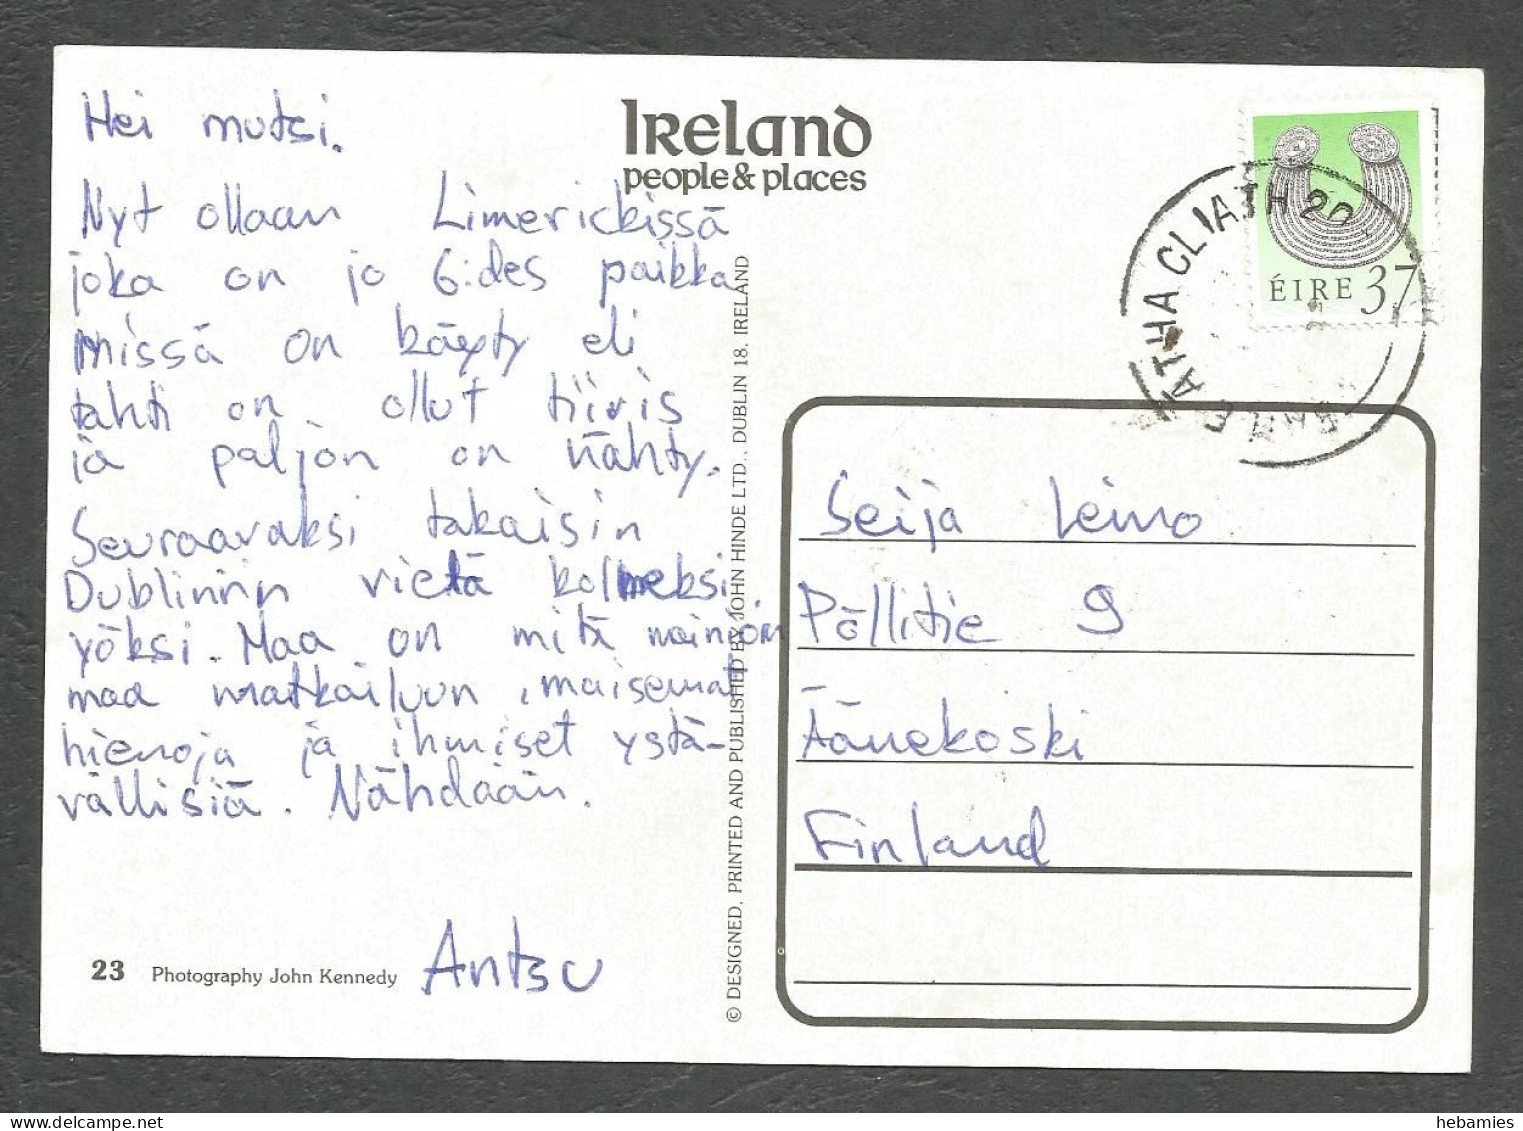 Hei mutsi.
Nyt ollaan Limerickissä
joka on jo 6:des paikka
missä on käyty eli
tahti on ollut tiivis
ja paljon on nähty.
Seuraavaksi takaisin
Dubliniin vielä kolmeksi
yöksi. Maa on mitä mainioin
maa matkailuun, maisemat
hienoja ja ihmiset ystä-
vällisiä. Nähdään.
Antsu
23 Photography John Kennedy
Ireland
people & places
© DESIGNED, PRINTED AND PUBLISHED BY JOHN HINDE LTD., DUBLIN 18, IRELAND
ÉIRE 37
BAILE ATHA CLIATH
Seija Leino
Pöllitie 9
Äänekoski
Finland
hebamies